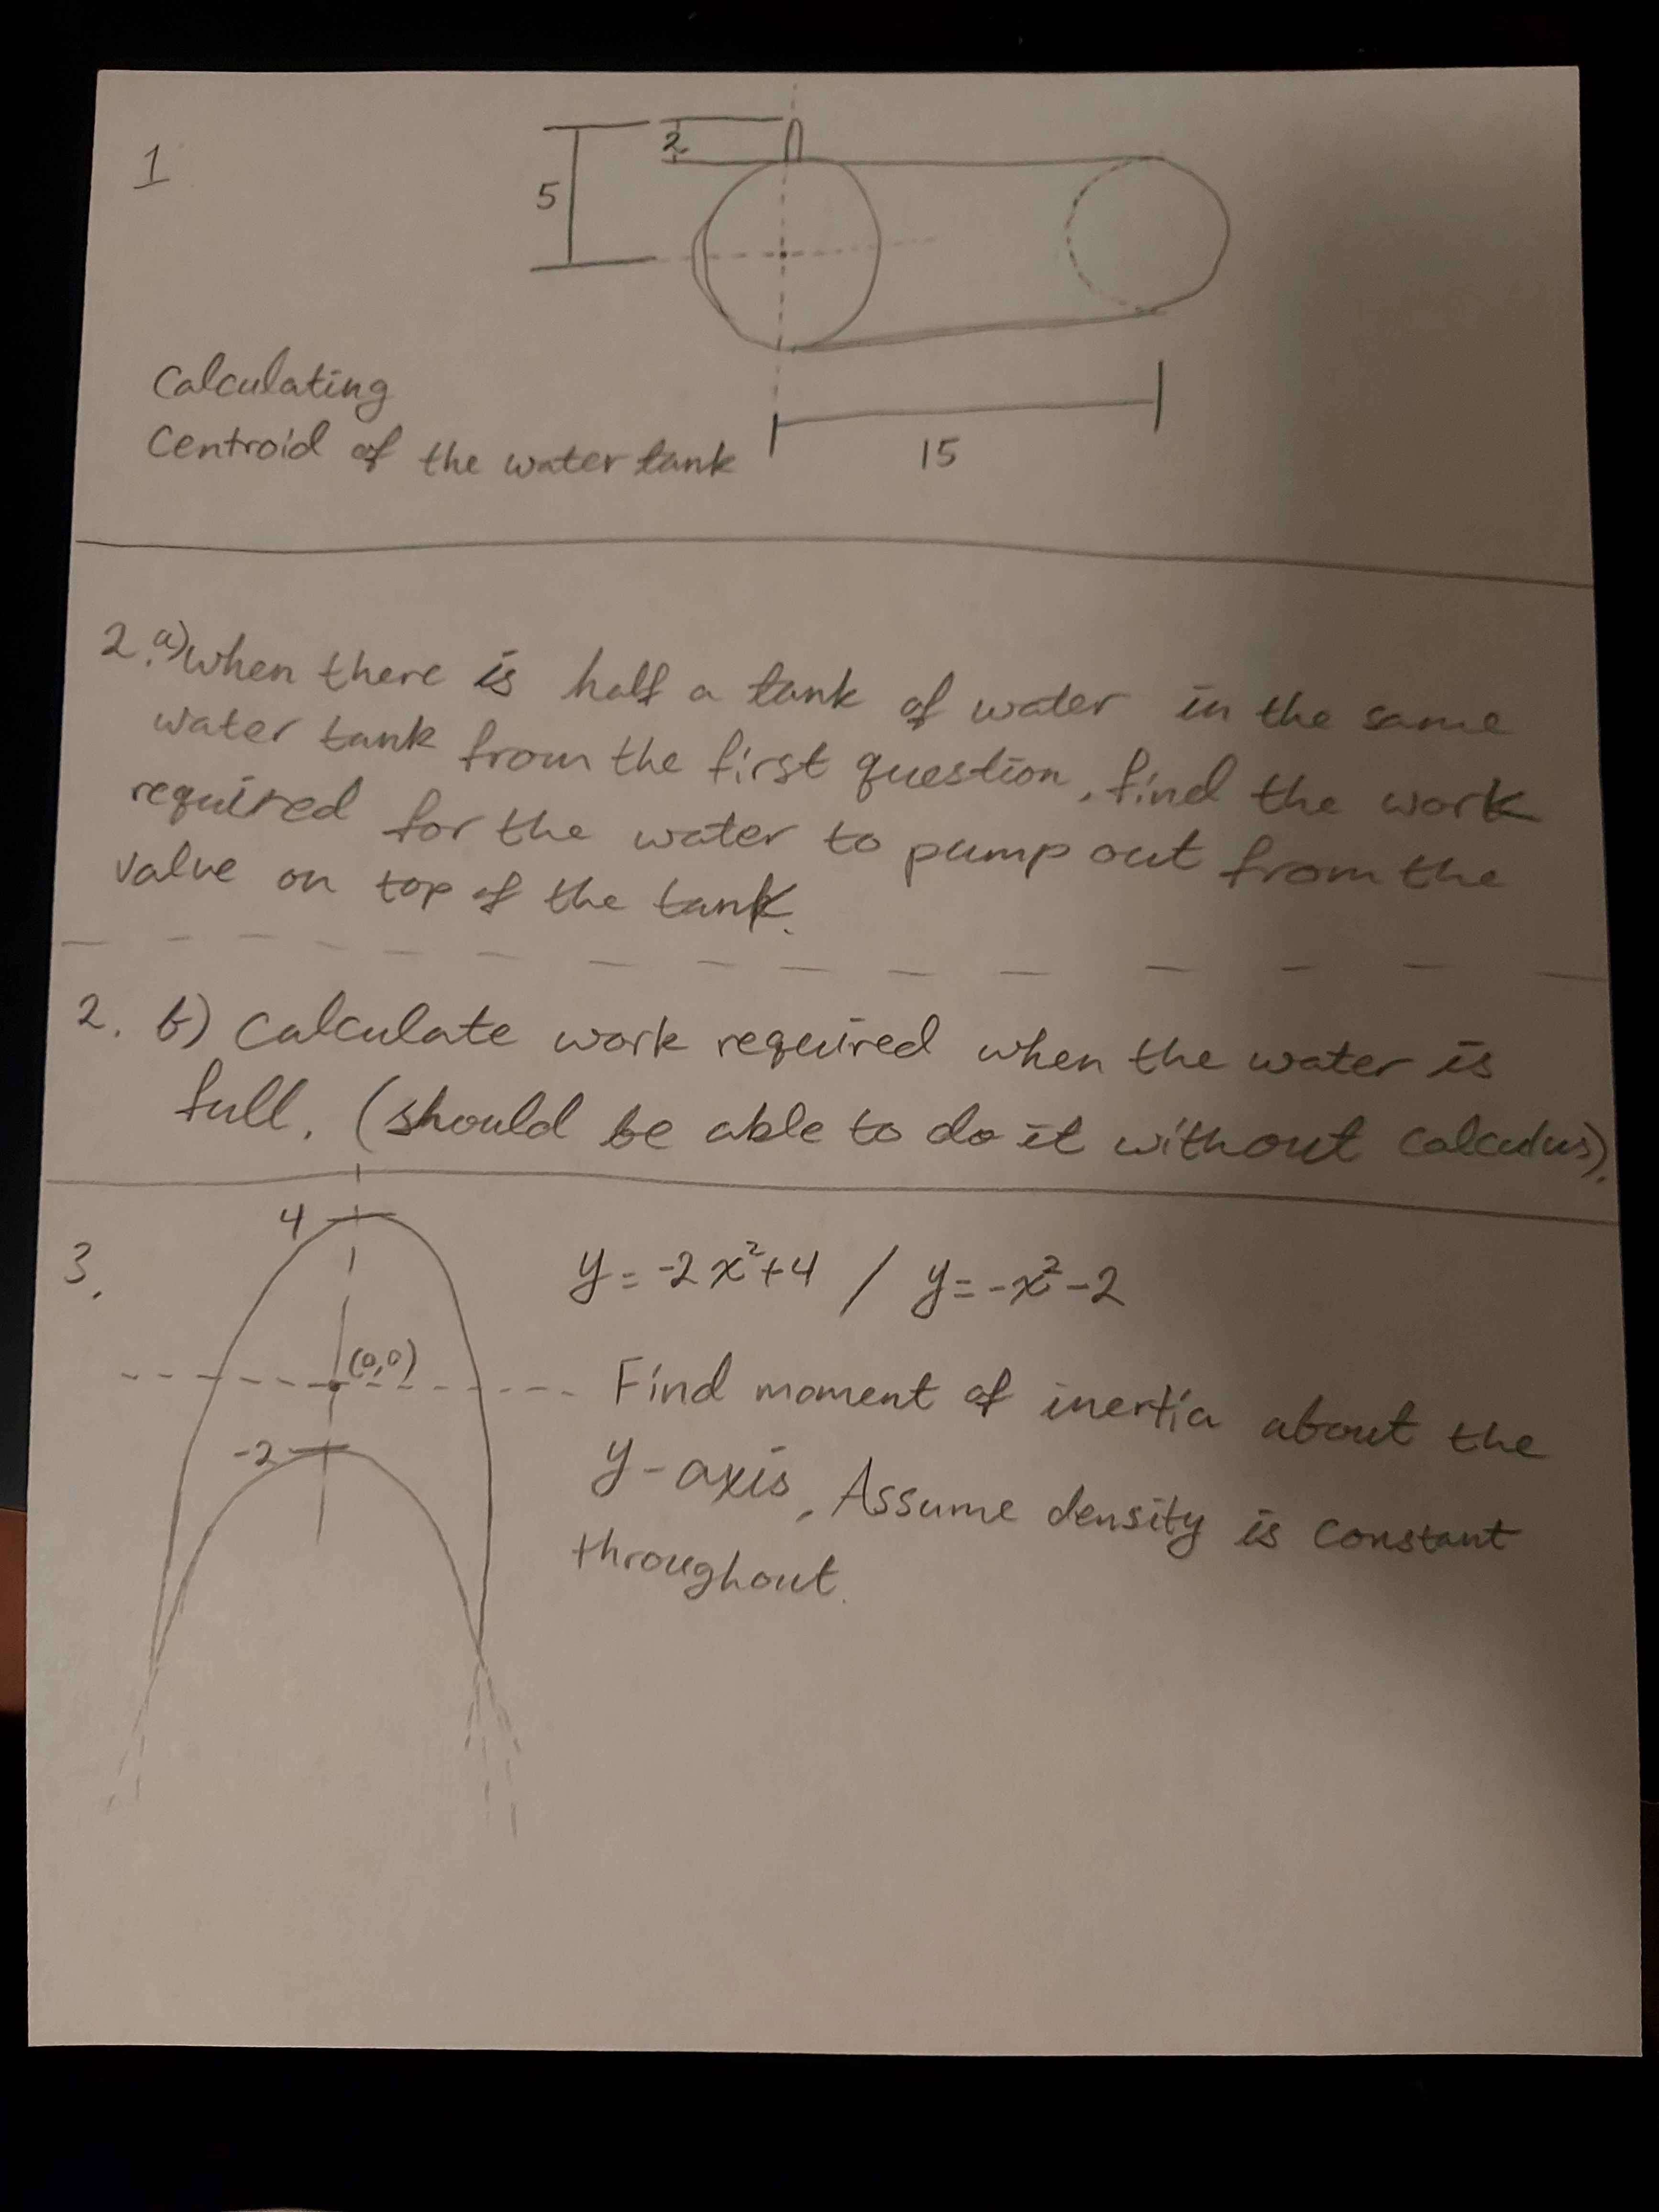 1
2
5
15
Calculating
Centroid of the water tank
2. a) when there is half a tank of water in the same
water tank from the first question, find the work
required for the water to pump out from the
valve on top of the tank.
2. b) Calculate work required when the water is
full. (should be able to do it without calculus).
3.
4
y = -2x²+4 / y = -x²-2
(0,0)
Find moment of inertia about the
-2
y-axis. Assume density is constant
throughout.